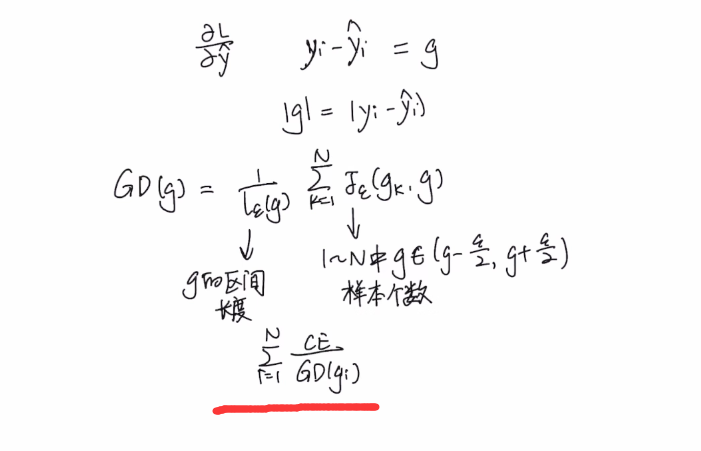 ∂L/∂ŷ yi - ŷi = g
|g| = |yi - ŷi|
GD(g) = 1/lε(g) Σ_{k=1}^{N} δε(gk, g)
g的区间长度
1~N中g∈(g-ε/2, g+ε/2)
样本个数
Σ_{i=1}^{N} CE/GD(gi)